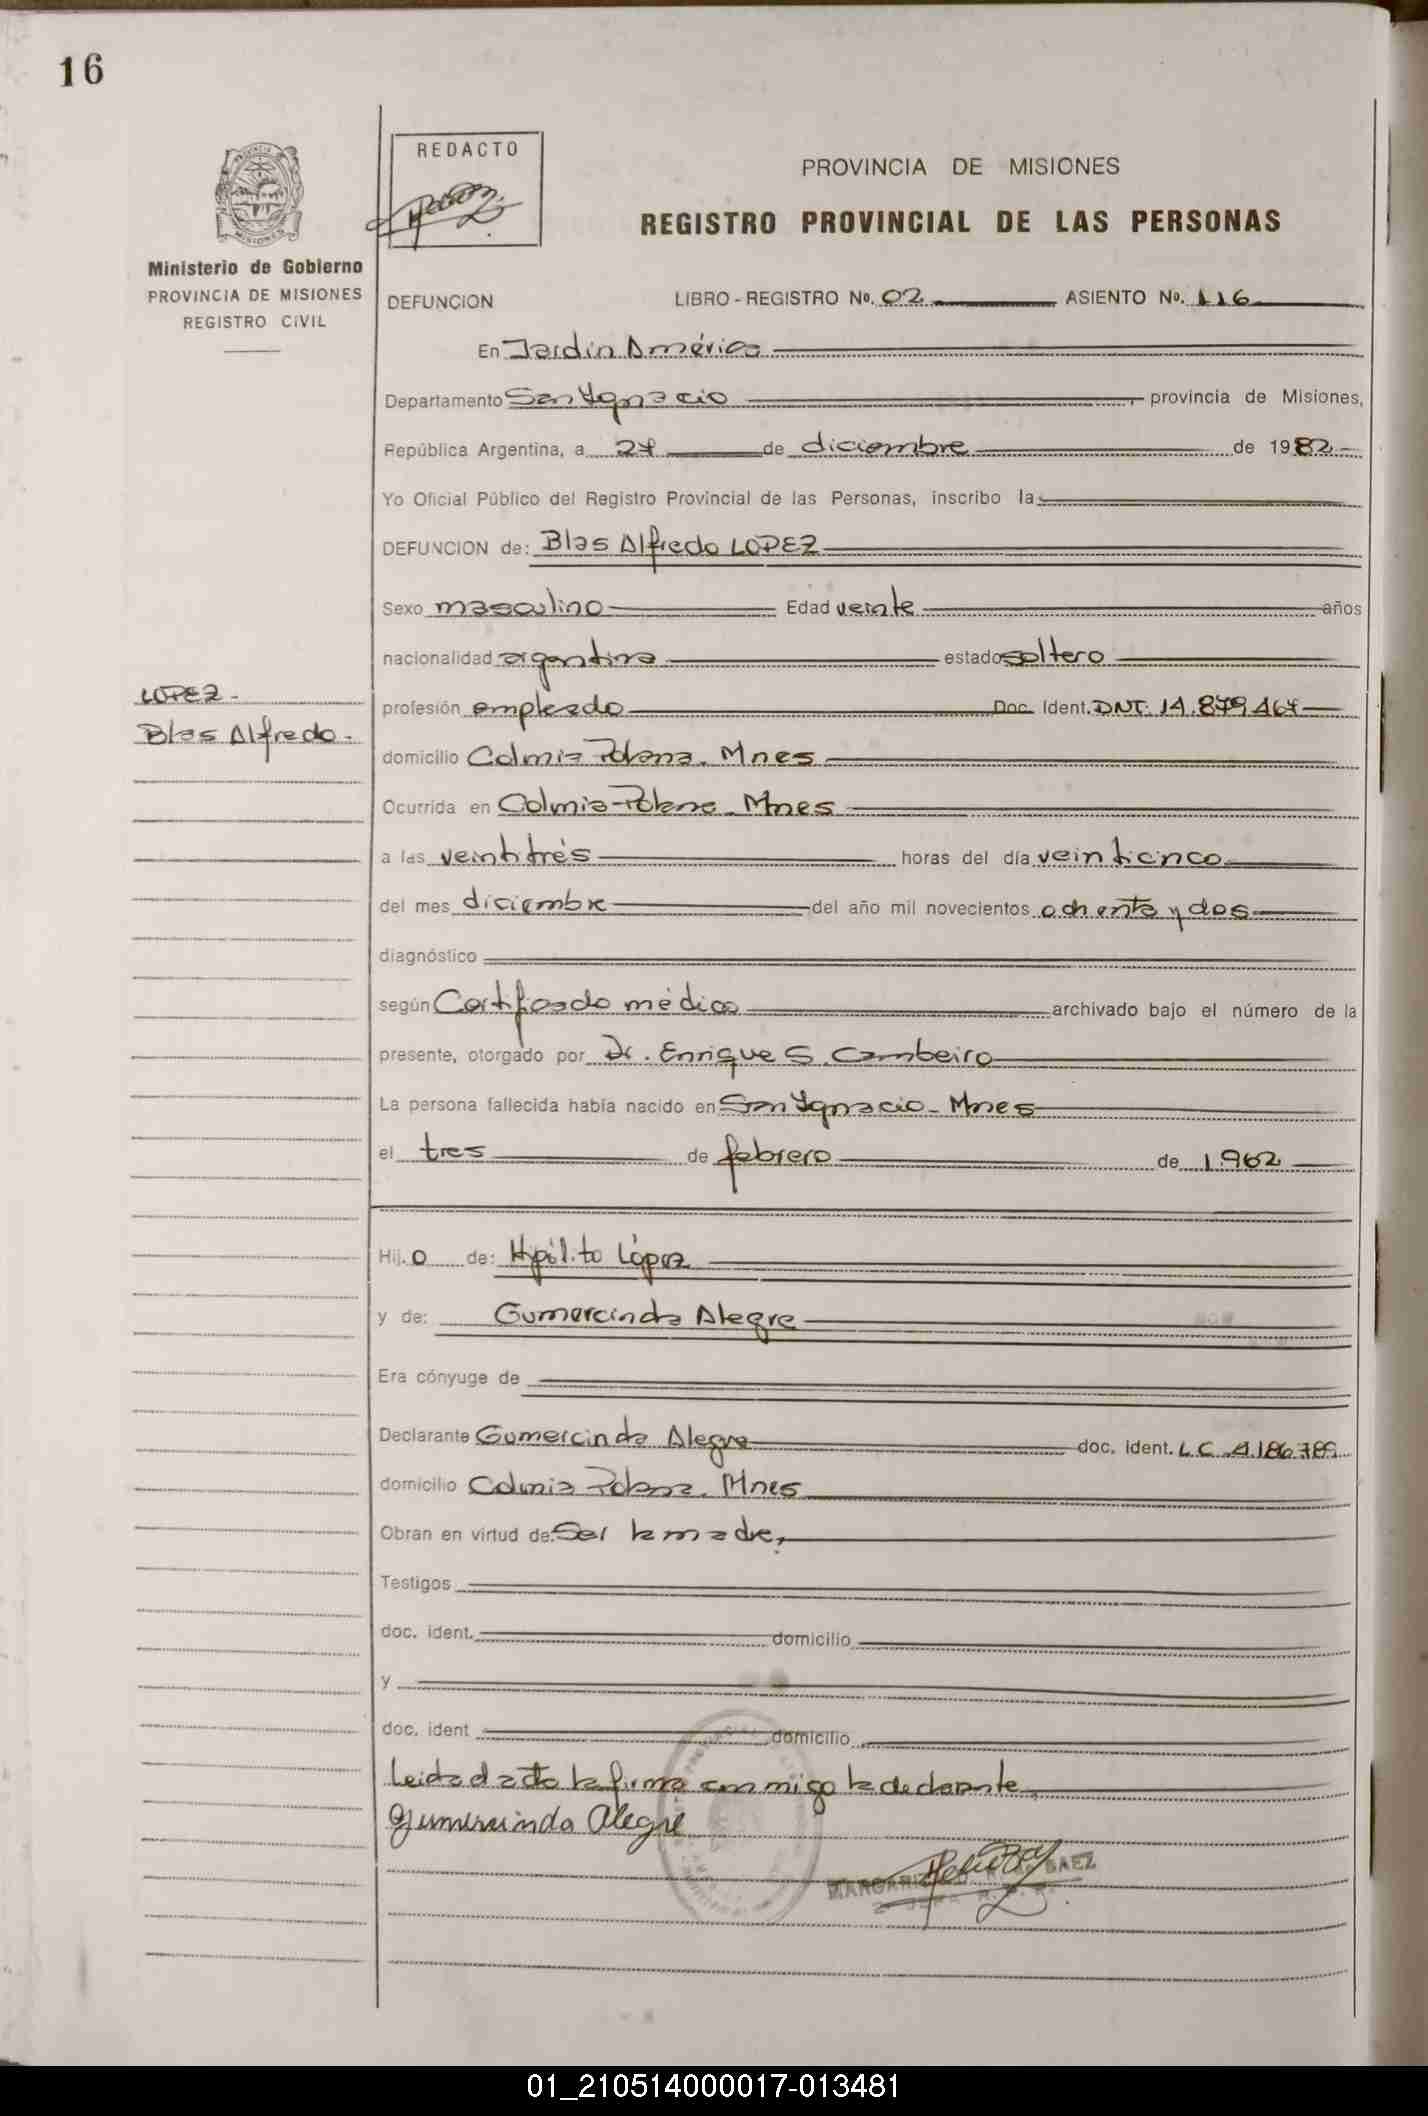 16
REDACTO
PROVINCIA DE MISIONES
REGISTRO PROVINCIAL DE LAS PERSONAS
MISIONES
Ministerio de Gobierno
PROVINCIA DE MISIONES
REGISTRO CIVIL
DEFUNCION LIBRO - REGISTRO No. 02 ASIENTO No. 116
En Jardín América
Departamento San Ygnacio, provincia de Misiones,
República Argentina, a 27 de diciembre de 1982
Yo Oficial Público del Registro Provincial de las Personas, inscribo la
DEFUNCION de: Blas Alfredo LOPEZ
Sexo masculino Edad veinte años
nacionalidad argentina estado soltero
LOPEZ-
Blas Alfredo-
profesión empleado Doc. Ident. DNI. 14.879.467
domicilio Colonia Polana. Mnes
Ocurrida en Colonia-Polana-Mnes
a las veintitrés horas del día veinticinco
del mes diciembre del año mil novecientos ochenta y dos
diagnóstico
según Certificado médico archivado bajo el número de la
presente, otorgado por Dr. Enrique S. Cambeiro
La persona fallecida había nacido en San Ygnacio-Mnes
el tres de febrero de 1.962
Hij.o de: Hypólito López
y de: Gumercinda Alegre
Era cónyuge de
Declarante Gumercinda Alegre doc. ident. L.C. 4.186.789
domicilio Colonia Polana. Mnes
Obran en virtud de: Ser la madre,
Testigos
doc. ident. domicilio
y
doc. ident domicilio
Leida el acta la firma conmigo la declarante,
Gumercinda Alegre
SAEZ
01_210514000017-013481